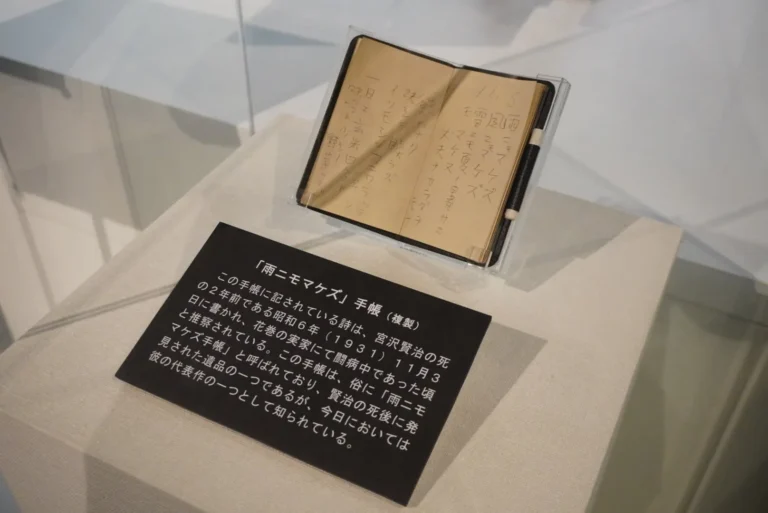 11.3.
雨ニモマケズ
風ニモマケズ
雪ニモ夏ノ暑サニモマケヌ
「雨ニモマケズ」手帳（複製）
この手帳に記されている詩は、宮沢賢治の死
の２年前である昭和６年（1931）11月３
日に書かれ、花巻の実家にて闘病中であった頃
と推察されている。この手帳は、俗に「雨ニモ
マケズ手帳」と呼ばれており、賢治の死後に発
見された遺品の一つであるが、今日においては
彼の代表作の一つとして知られている。